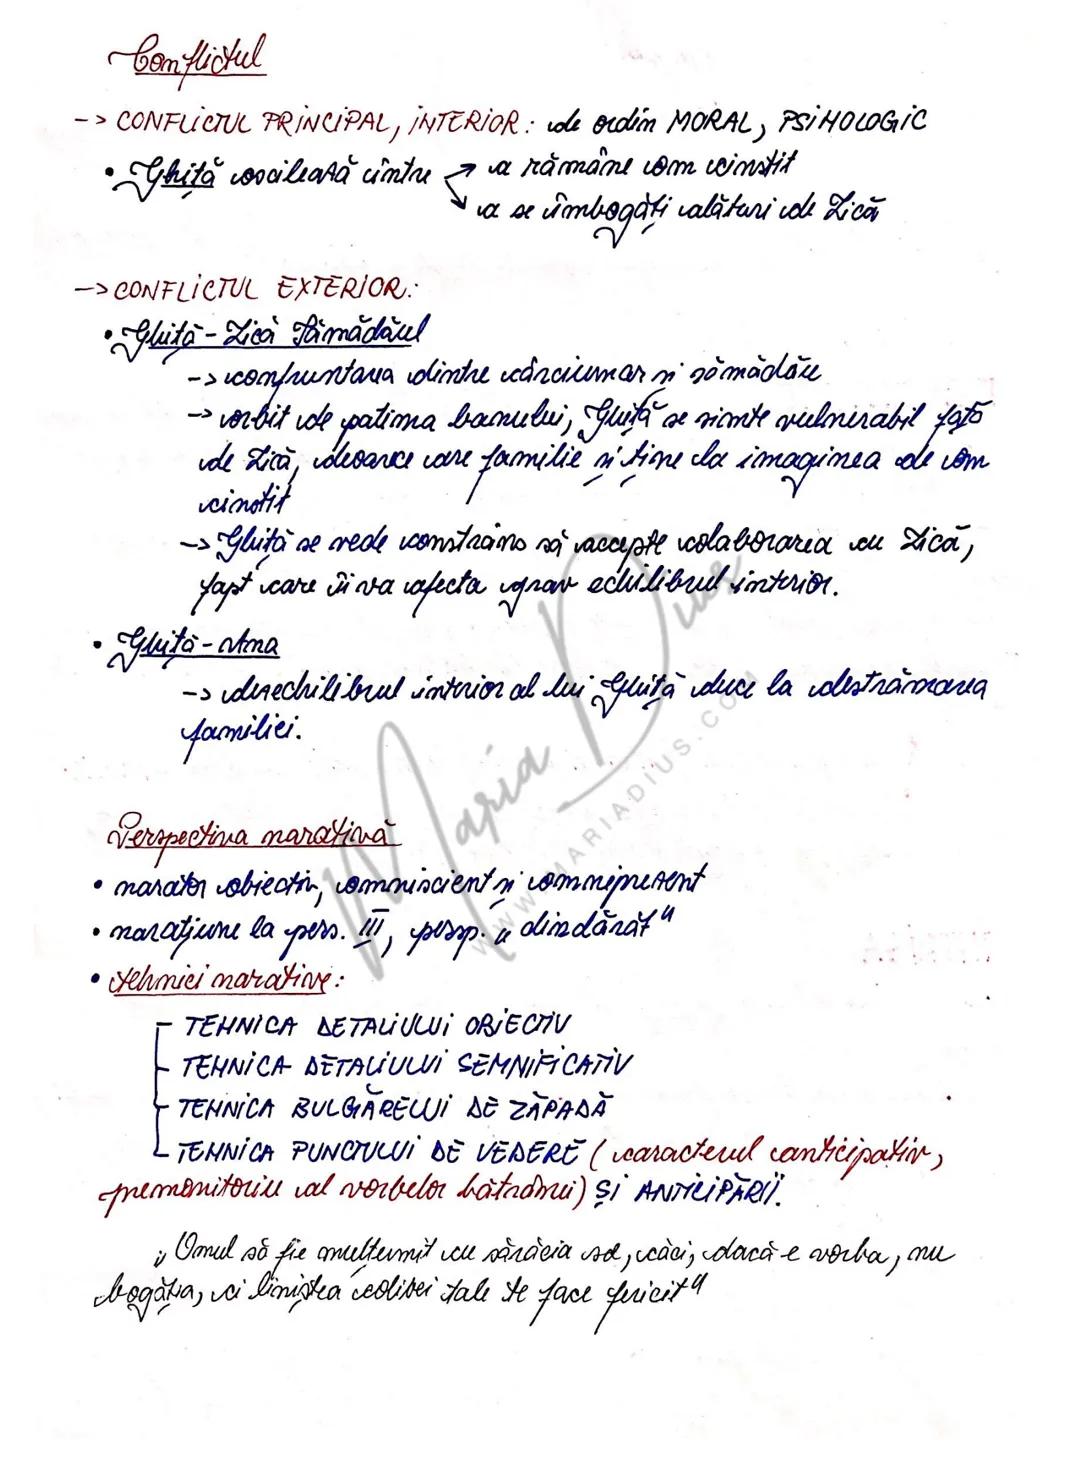 Conflictul
-> CONFLICTUL PRINCIPAL, INTERIOR: de ordin MORAL, PSIHOLOGIC
• Ghiță oscilează între → a rămâne om cinstit
↘ a se îmbogăți alături de Lică
-> CONFLICTUL EXTERIOR:
• Ghiță - Lică Sămădăul
-> confruntarea dintre cârciumar și sămădău
-> orbit de patima banului, Ghiță se simte vulnerabil față
de Lică, deoarece are familie și ține la imaginea de om
cinstit
-> Ghiță se vede constrâns să accepte colaborarea cu Lică,
fapt care îi va afecta grav echilibrul interior.
• Ghiță - Ana
-> dezechilibrul interior al lui Ghiță duce la destrămarea
familiei.
Perspectiva narativă
• narator obiectiv, omniscient și omniprezent
• narațiune la pers. III, persp. „dindărăt"
• tehnici narative:
- TEHNICA DETALIULUI OBIECTIV
- TEHNICA DETALIULUI SEMNIFICATIV
- TEHNICA BULGĂRELUI DE ZĂPADĂ
- TEHNICA PUNCTULUI DE VEDERE (caracterul anticipativ,
premonitoriu al vorbelor bătrânei) ȘI ANTICIPĂRII.
„Omul să fie mulțumit cu sărăcia sa, căci, dacă-e vorba, nu
bogăția, ci liniștea colibei tale te face fericit"
Maria Dius
WWW.MARIADIUS.COM